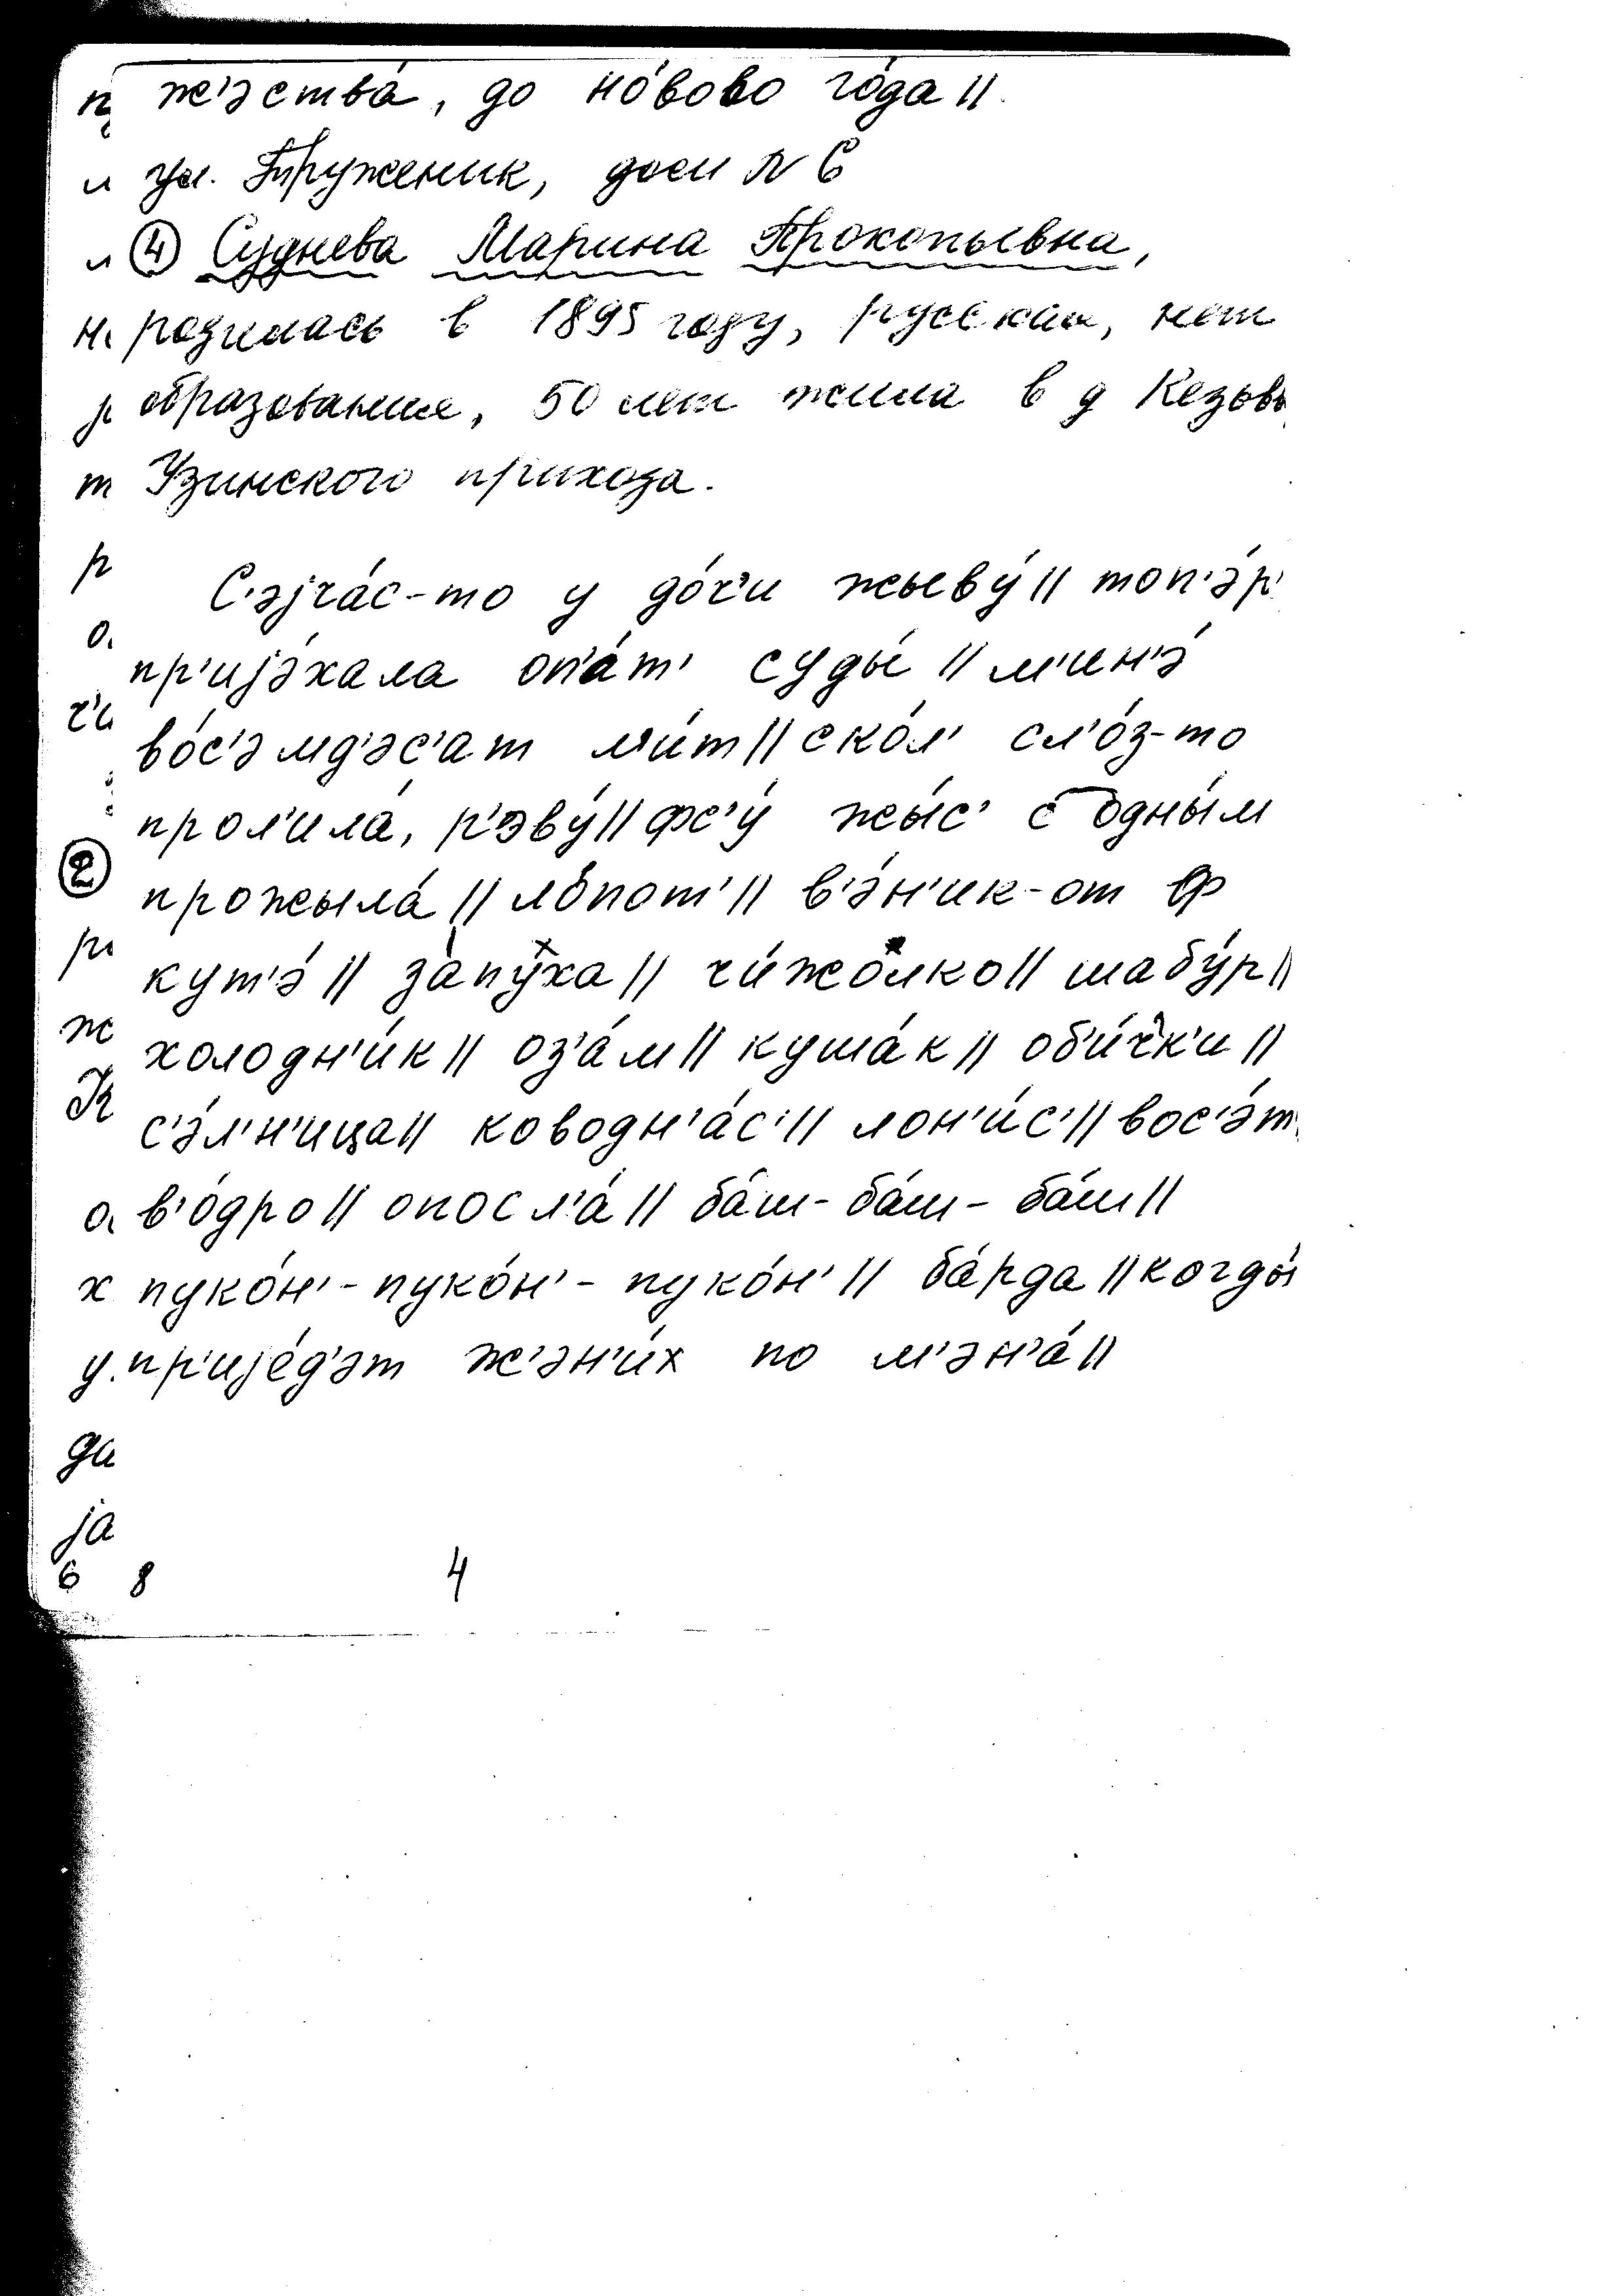 ж'эства́, до но́вово го́да ||
ул. Труженик, дом № 6
④ Суднева Марина Прокопьевна,
родилась в 1895 году, русская, нет
образования, 50 лет жила в д
Узинского прихода.
С'эjча́с-то у до́ч'и жыву́ || топ'э́р'
пр'иjэ́хала оп'а́т' суды́ || м'ин'э́
во́с'эмд'эс'ат л'и́т || ско́л' сл'о́з-то
прол'ила́, р'эву́ || фс'у́ жы́с' с одны́м
прожыла́ || ло́пот' || в'э́н'ик-от ф
кут'э́ || запу́ха || чи́жолко || шабу́р ||
холодн'и́к || оз'а́м || куша́к || об'и́чк'и ||
с'э́л'н'ица || ководн'а́с' || лон'и́с' || вос'э́т
в'о́дро || опосл'а́ || ба́ш- ба́ш- ба́ш ||
пуко́н'- пуко́н'- пуко́н' || ба́рда || когды́
пр'иjе́д'эт ж'эн'и́х по м'эн'а́ ||
8 4